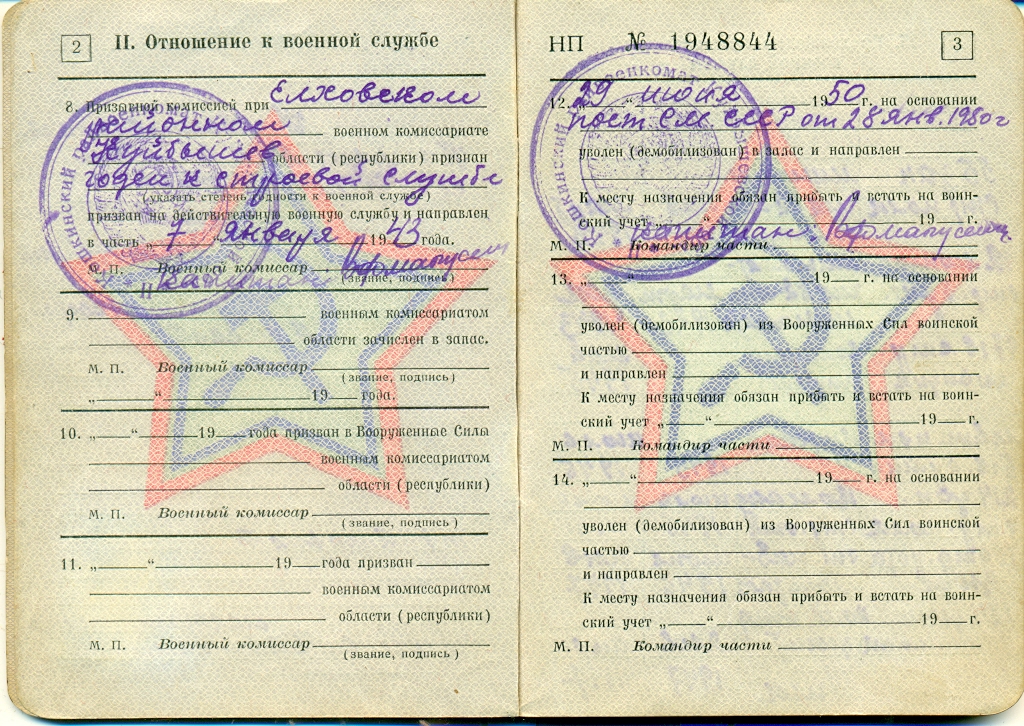 2
II. Отношение к военной службе
8. Призывной комиссией при Елховском
районном военном комиссариате
Куйбышев области (республики) признан
годен к строевой службе
(указать степень годности к военной службе)
призван на действительную военную службу и направлен
в часть „ 7 “ января 1943 года.
М. П. Военный комиссар
(звание, подпись)
капитан
9. военным комиссариатом
области зачислен в запас.
М. П. Военный комиссар
(звание, подпись)
„ “ 19 года.
10. „ “ 19 года призван в Вооруженные Силы
военным комиссариатом
области (республики)
М. П. Военный комиссар
(звание, подпись)
11. „ “ 19 года призван
военным комиссариатом
области (республики)
М. П. Военный комиссар
(звание, подпись)
НП № 1948844
3
12. „ 29 “ июня 1950 г. на основании
пост. СМ СССР от 28 янв. 1980 г
уволен (демобилизован) в запас и направлен
К месту назначения обязан прибыть и встать на воин-
ский учет „ “ 19 г.
М. П. Командир части капитан
13. „ “ 19 г. на основании
уволен (демобилизован) из Вооруженных Сил воинской
частью
и направлен
К месту назначения обязан прибыть и встать на воин-
ский учет „ “ 19 г.
М. П. Командир части
14. „ “ 19 г. на основании
уволен (демобилизован) из Вооруженных Сил воинской
частью
и направлен
К месту назначения обязан прибыть и встать на воин-
ский учет „ “ 19 г.
М. П. Командир части